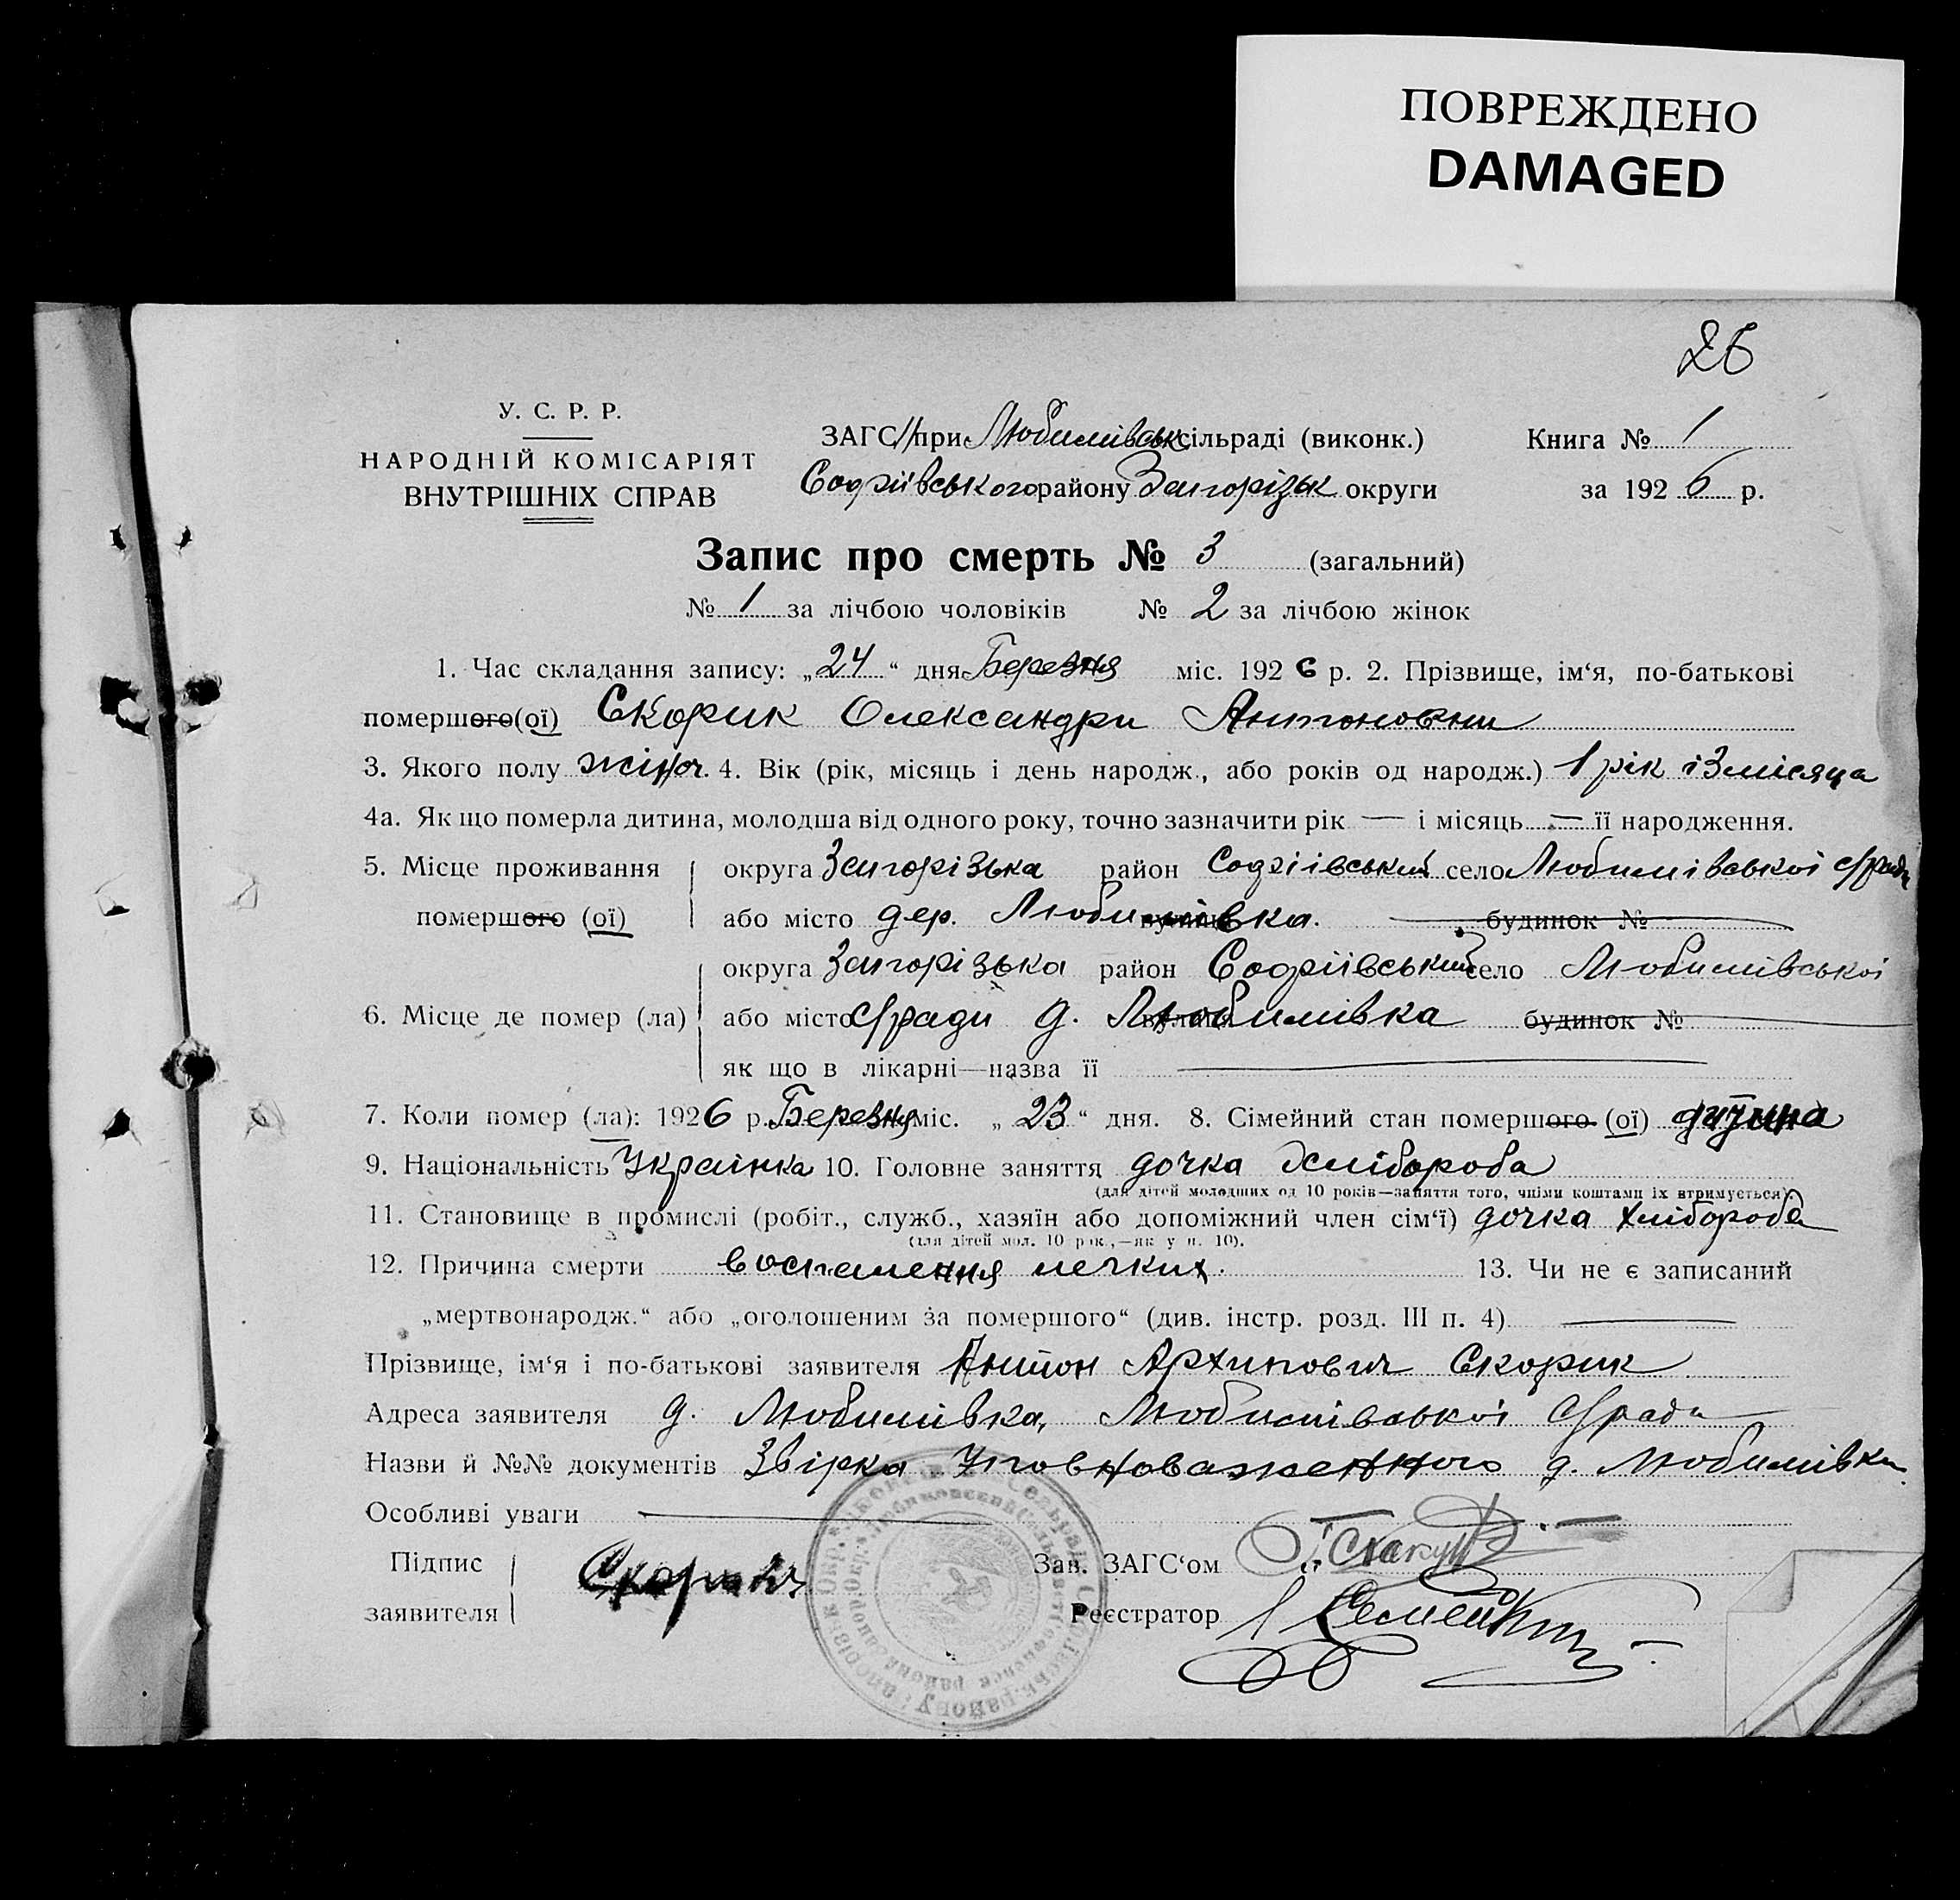 ПОВРЕЖДЕНО
DAMAGED
26
У. С. Р. Р.
НАРОДНІЙ КОМІСАРІЯТ
ВНУТРІШНІХ СПРАВ
ЗАГС при Любимівськ сільраді (виконк.)
Софіівського району Запорізьк округи
Книга № 1
за 1926 р.
Запис про смерть № 3 (загальний)
№ 1 за лічбою чоловіків № 2 за лічбою жінок
1. Час складання запису: „24“ дня Березня міс. 1926 р. 2. Прізвище, ім‘я, по-батькові
помершого(ої) Скорик Олександри Антоновни
3. Якого полу жіноч. 4. Вік (рік, місяць і день народж., або років од народж.) 1 рік і 3 місяца
4а. Як що померла дитина, молодша від одного року, точно зазначити рік — і місяць — її народження.
5. Місце проживання округа Запорізька район Софіівський село Любимівської с/ради
помершого (ої) або місто дер. Любимівка. вулиця будинок №
округа Запорізька район Софіївський село Любимівської
6. Місце де помер (ла) або місто с/ради д. Любимівка вулиця будинок №
як що в лікарні—назва її
7. Коли помер (ла): 1926 р. Березня міс. „23“ дня. 8. Сімейний стан помершого (ої) дитина
9. Національність Українка 10. Головне заняття дочка хлібороба
(для дітей молодших од 10 років—заняття того, чиїми коштами їх втримується)
11. Становище в промислі (робіт., служб., хазяїн або допоміжний член сім‘ї) дочка хлібороба
(для дітей мол. 10 рок.,—як у п. 10).
12. Причина смерти воспалення легких. 13. Чи не є записаний
„мертвонародж.“ або „оголошеним за помершого“ (див. інстр. розд. III п. 4) —
Прізвище, ім‘я і по-батькові заявителя Антон Архипович Скорик
Адреса заявителя д. Любимівка, Любимівської с/ради
Назви й №№ документів Звірка Уповноваженного д. Любимівки.
Особливі уваги —
Підпис
заявителя Скорик
Зав. ЗАГС‘ом
Реєстратор